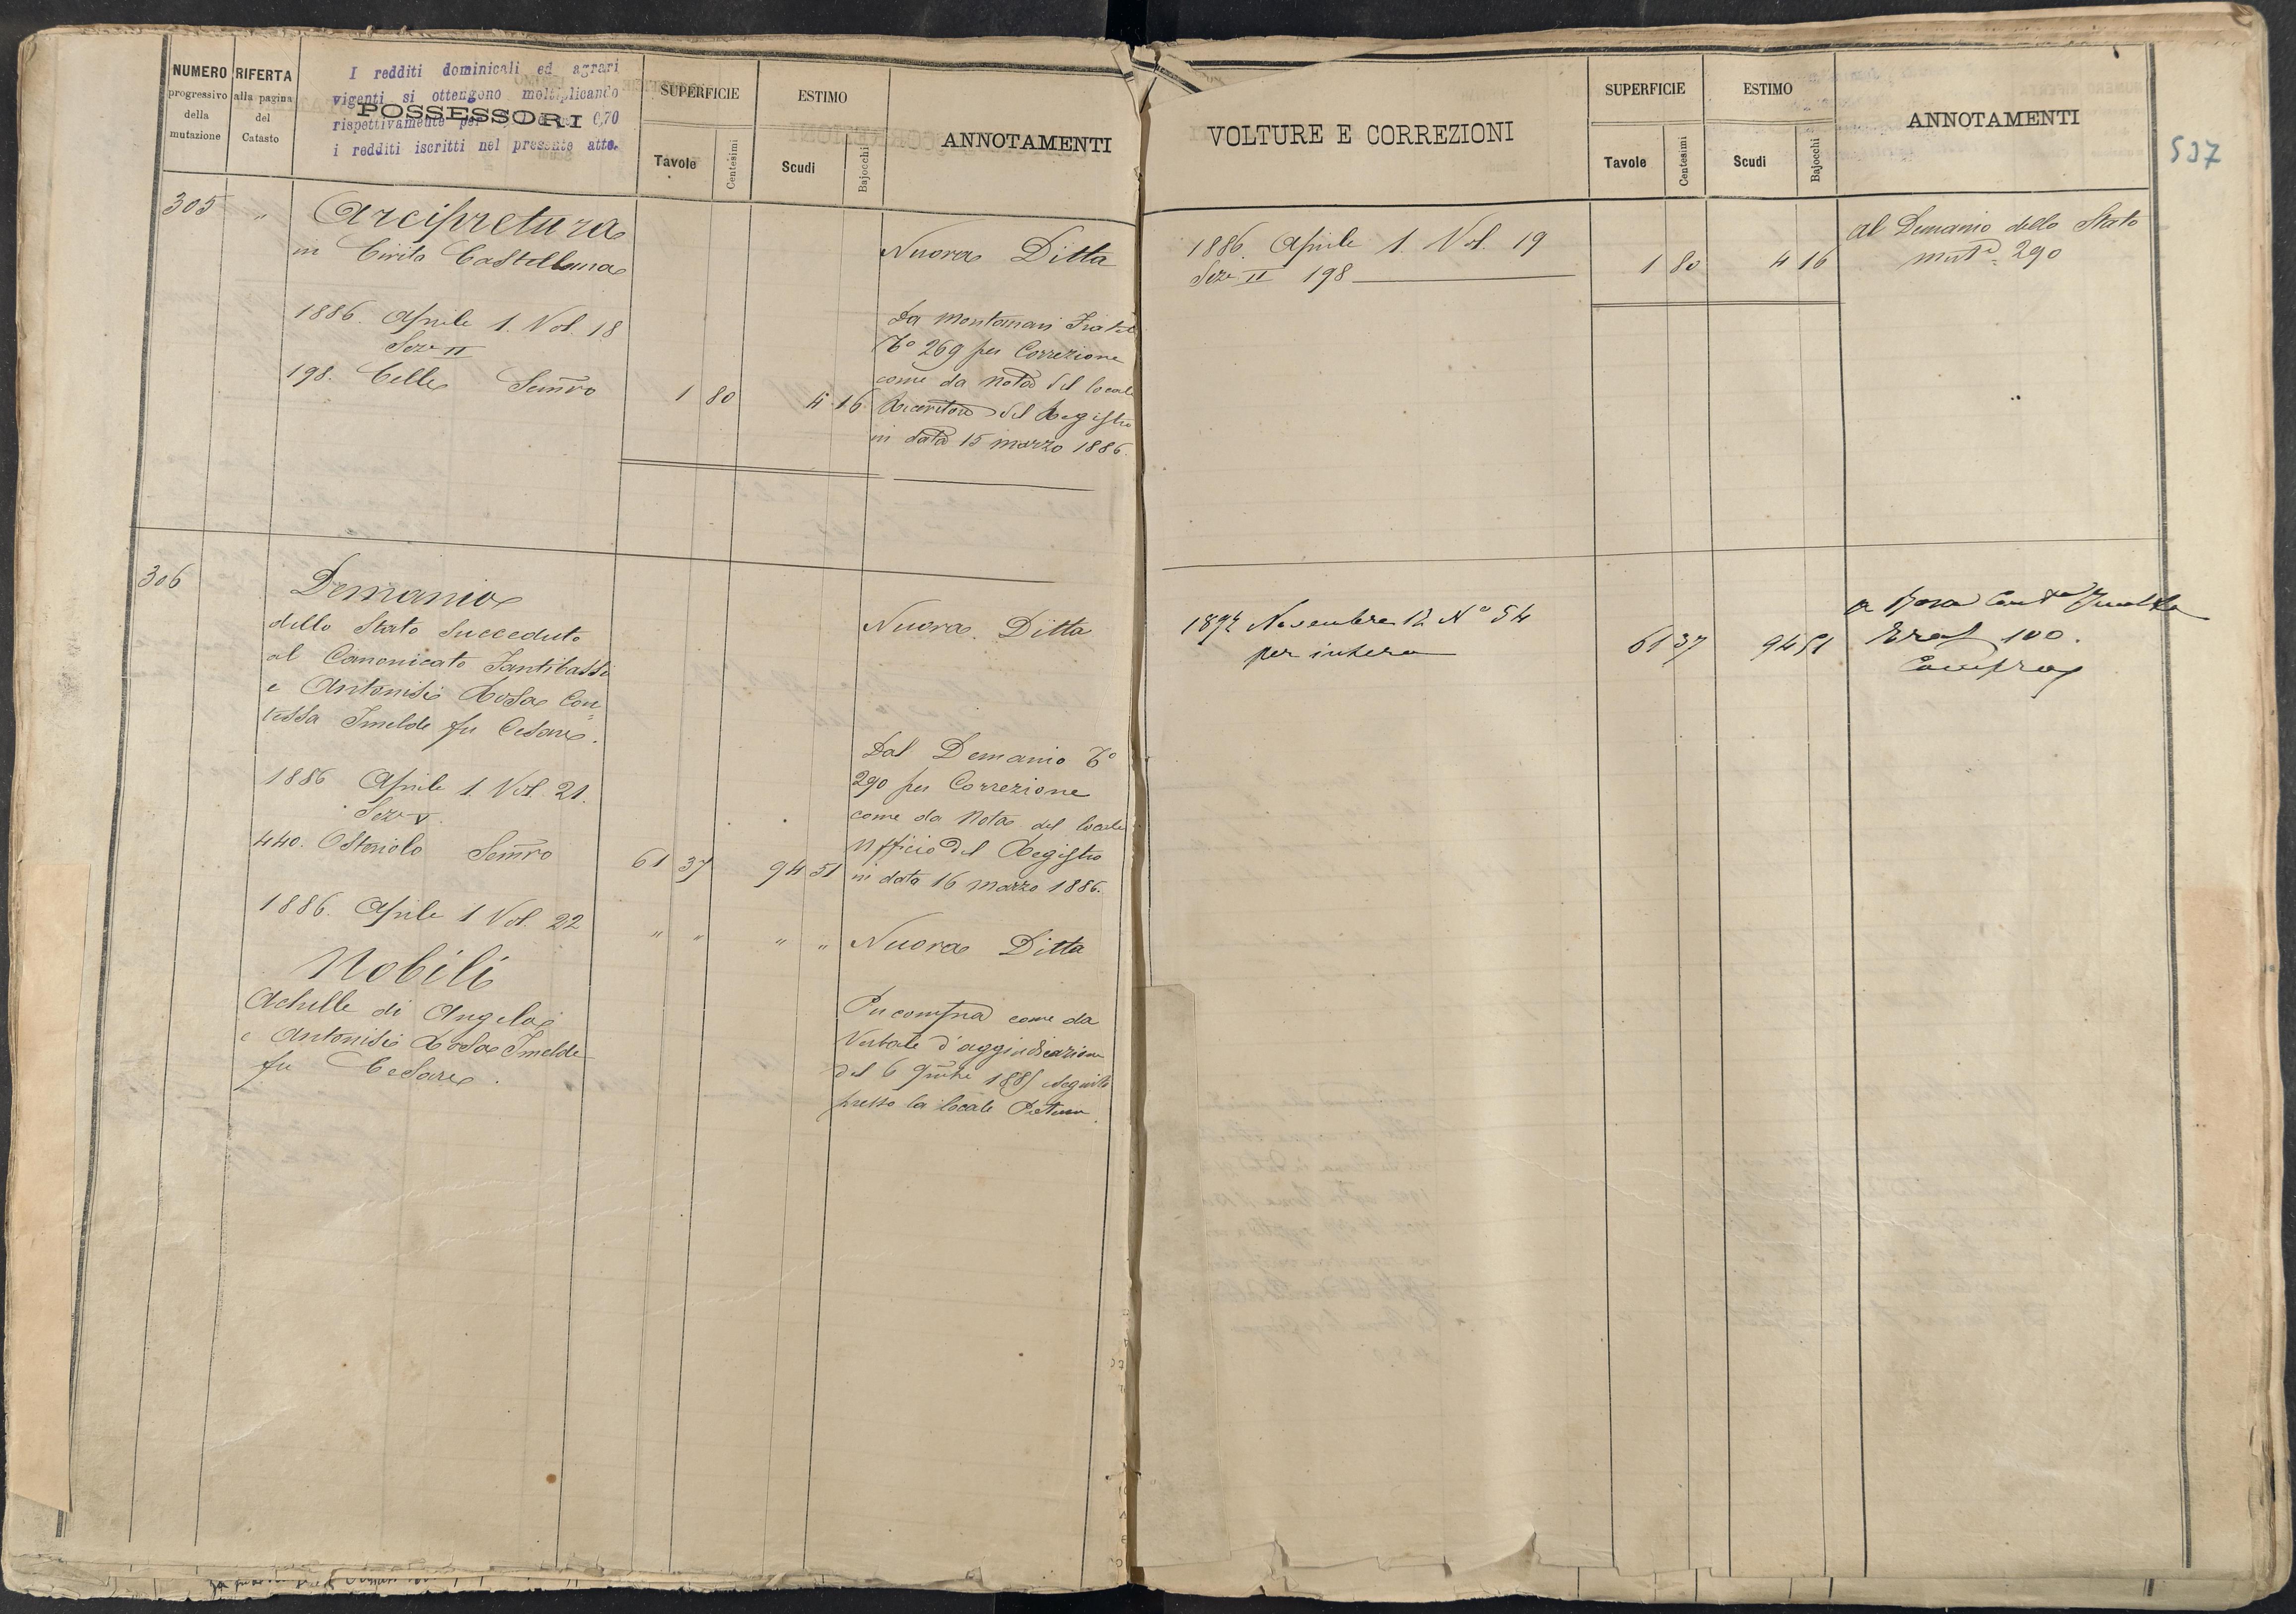 NUMERO
progressivo
della
mutazione
RIFERTA
alla pagina
del
Catasto
I redditi dominicali ed agrari
vigenti si ottengono moltiplicando
POSSESSORI
rispettivamente per 0,70
i redditi iscritti nel presente atto.
SUPERFICIE
Tavole
Centesimi
ESTIMO
Scudi
Bajocchi
ANNOTAMENTI
305 " Arcipretura
in Civita Castellana
Nuova Ditta
1886. Aprile 1. Vol. 18
Sez. II
198. Celle Semro 1 80 4.16
Da Montanari Fratel
To 269 per Correzione
come da nota del locale
Ricevitore del Registro
in data 15 marzo 1886.
306 Demanio
dello Stato Succeduto
al Canonicato Santibassi
e Antonisi Rosa Con=
tessa Imelde fu Cesare.
Nuova Ditta
1886 Aprile 1. Vol. 21.
Sez. V.
440. Ostariolo Semro 61 37 94 51
Dal Demanio To
290 per Correzione
come da Nota del locale
Ufficio del Registro
in data 16 marzo 1886.
1886. Aprile 1 Vol. 22 " " " " Nuova Ditta
Nobili
Achille di Angelo
e Antonisi Rosa Imelde
fu Cesare.
Per compra come da
Verbale d'aggiudicazione
del 6 1885 seguito
presso la locale Pretura.
VOLTURE E CORREZIONI
SUPERFICIE
Tavole
Centesimi
ESTIMO
Scudi
Bajocchi
ANNOTAMENTI
537
1886. Aprile 1. Vol. 19
Sez. II 198 1 80 4 16
Al Demanio dello Stato
muta. 290
1892 Novembre 12 No 54
per intero 61 37 94 51
a Rosa
100.
Compra